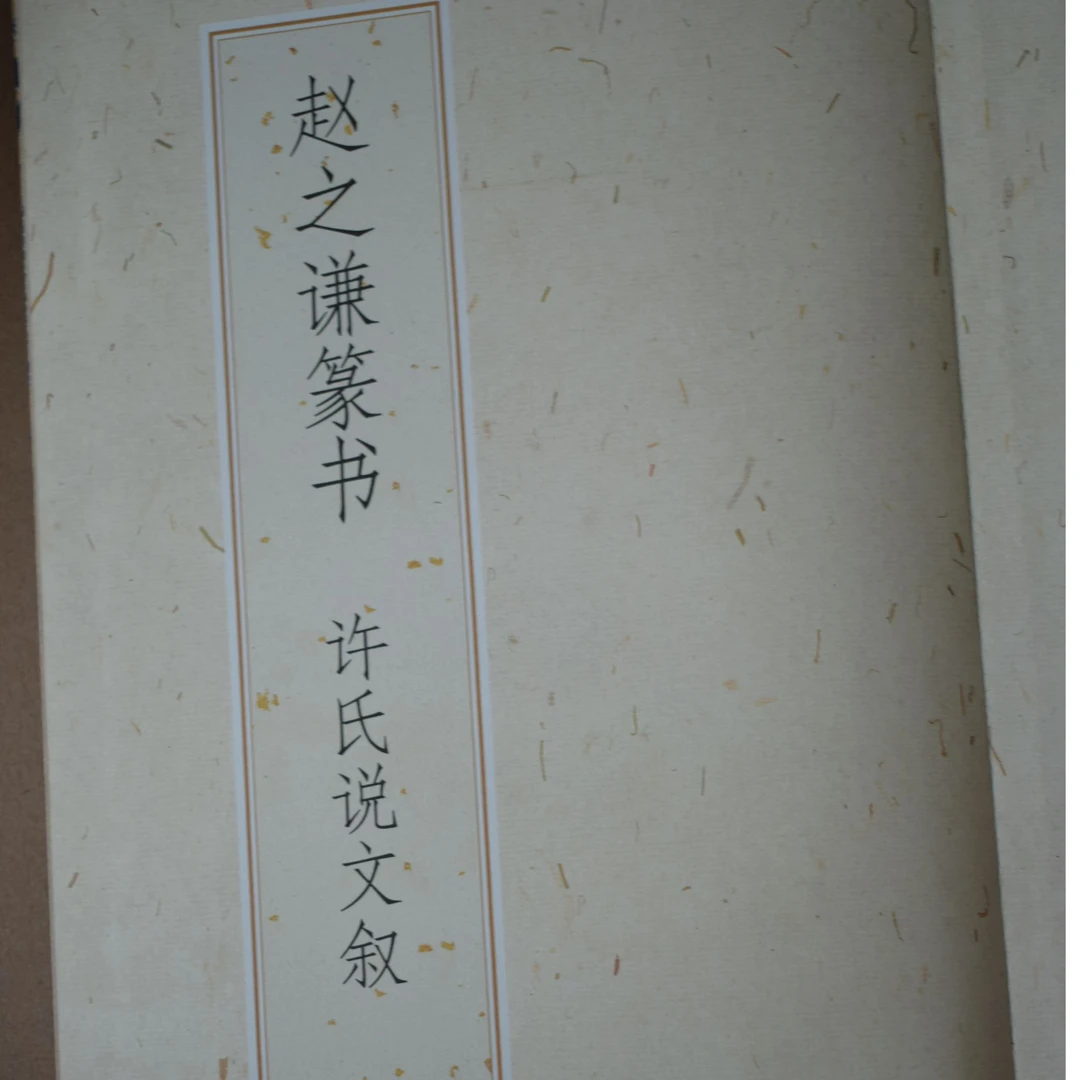 赵之谦篆书 许氏说文叙